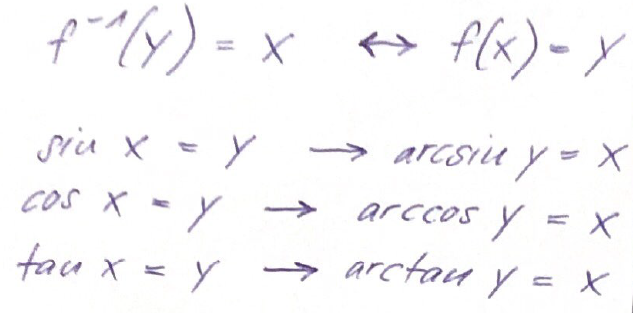 f⁻¹(y) = x ↔ f(x) = y
sin x = y → arcsin y = x
cos x = y → arccos y = x
tan x = y → arctan y = x